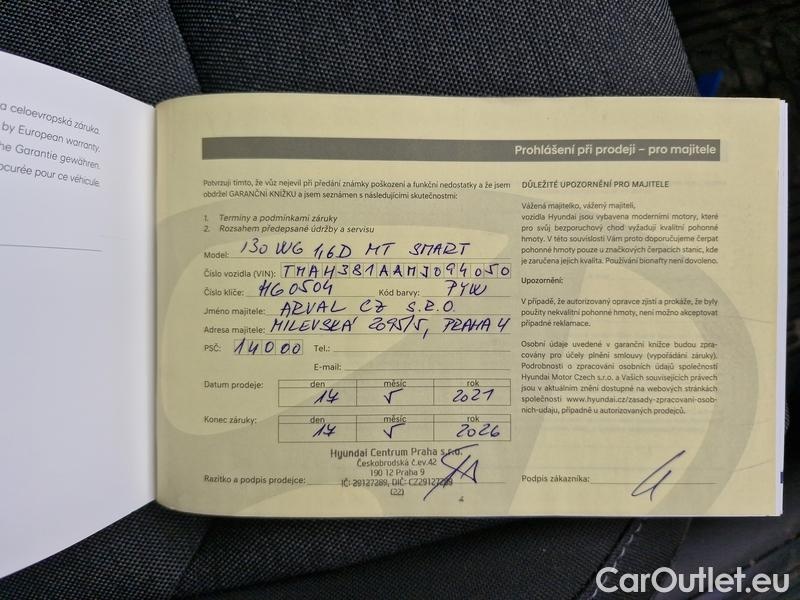 a celoevropská záruka.
by European warranty.
he Garantie gewähren.
ocurée pour ce véhicule.
Prohlášení při prodeji – pro majitele
Potvrzuji tímto, že vůz nejevil při předání známky poškození a funkční nedostatky a že jsem
obdržel GARANČNÍ KNÍŽKU a jsem seznámen s následujícími skutečnostmi:
1. Termíny a podmínkami záruky
2. Rozsahem předepsané údržby a servisu
Model: i30 WG 1,6D MT SMART
Číslo vozidla (VIN): TMAH381AAMJ094050
Číslo klíče: HG0504 Kód barvy: PYW
Jméno majitele: ARVAL CZ S.R.O.
Adresa majitele: MILEVSKÁ 2095/5, PRAHA 4
PSČ: 14000 Tel.:
E-mail:
Datum prodeje: den měsíc rok
17 5 2021
Konec záruky: den měsíc rok
17 5 2026
Hyundai Centrum Praha s.r.o.
Českobrodská č.ev.42
190 12 Praha 9
Razítko a podpis prodejce: IČ: 29127289, DIČ: CZ29127289
(22)
4
DŮLEŽITÉ UPOZORNĚNÍ PRO MAJITELE
Vážená majitelko, vážený majiteli,
vozidla Hyundai jsou vybavena moderními motory, které
pro svůj bezporuchový chod vyžadují kvalitní pohonné
hmoty. V této souvislosti Vám proto doporučujeme čerpat
pohonné hmoty pouze u značkových čerpacích stanic, kde
je zaručena jejich kvalita. Používání bionafty není dovoleno.
Upozornění:
V případě, že autorizovaný opravce zjistí a prokáže, že byly
použity nekvalitní pohonné hmoty, není možno akceptovat
případné reklamace.
Osobní údaje uvedené v garanční knížce budou zpra-
covány pro účely plnění smlouvy (vypořádání záruky).
Podrobnosti o zpracování osobních údajů společností
Hyundai Motor Czech s.r.o. a Vašich souvisejících právech
jsou v aktuálním znění dostupné na webových stránkách
společnosti www.hyundai.cz/zasady-zpracovani-osob-
nich-udaju, případně u autorizovaných prodejců.
Podpis zákazníka:
CarOutlet.eu